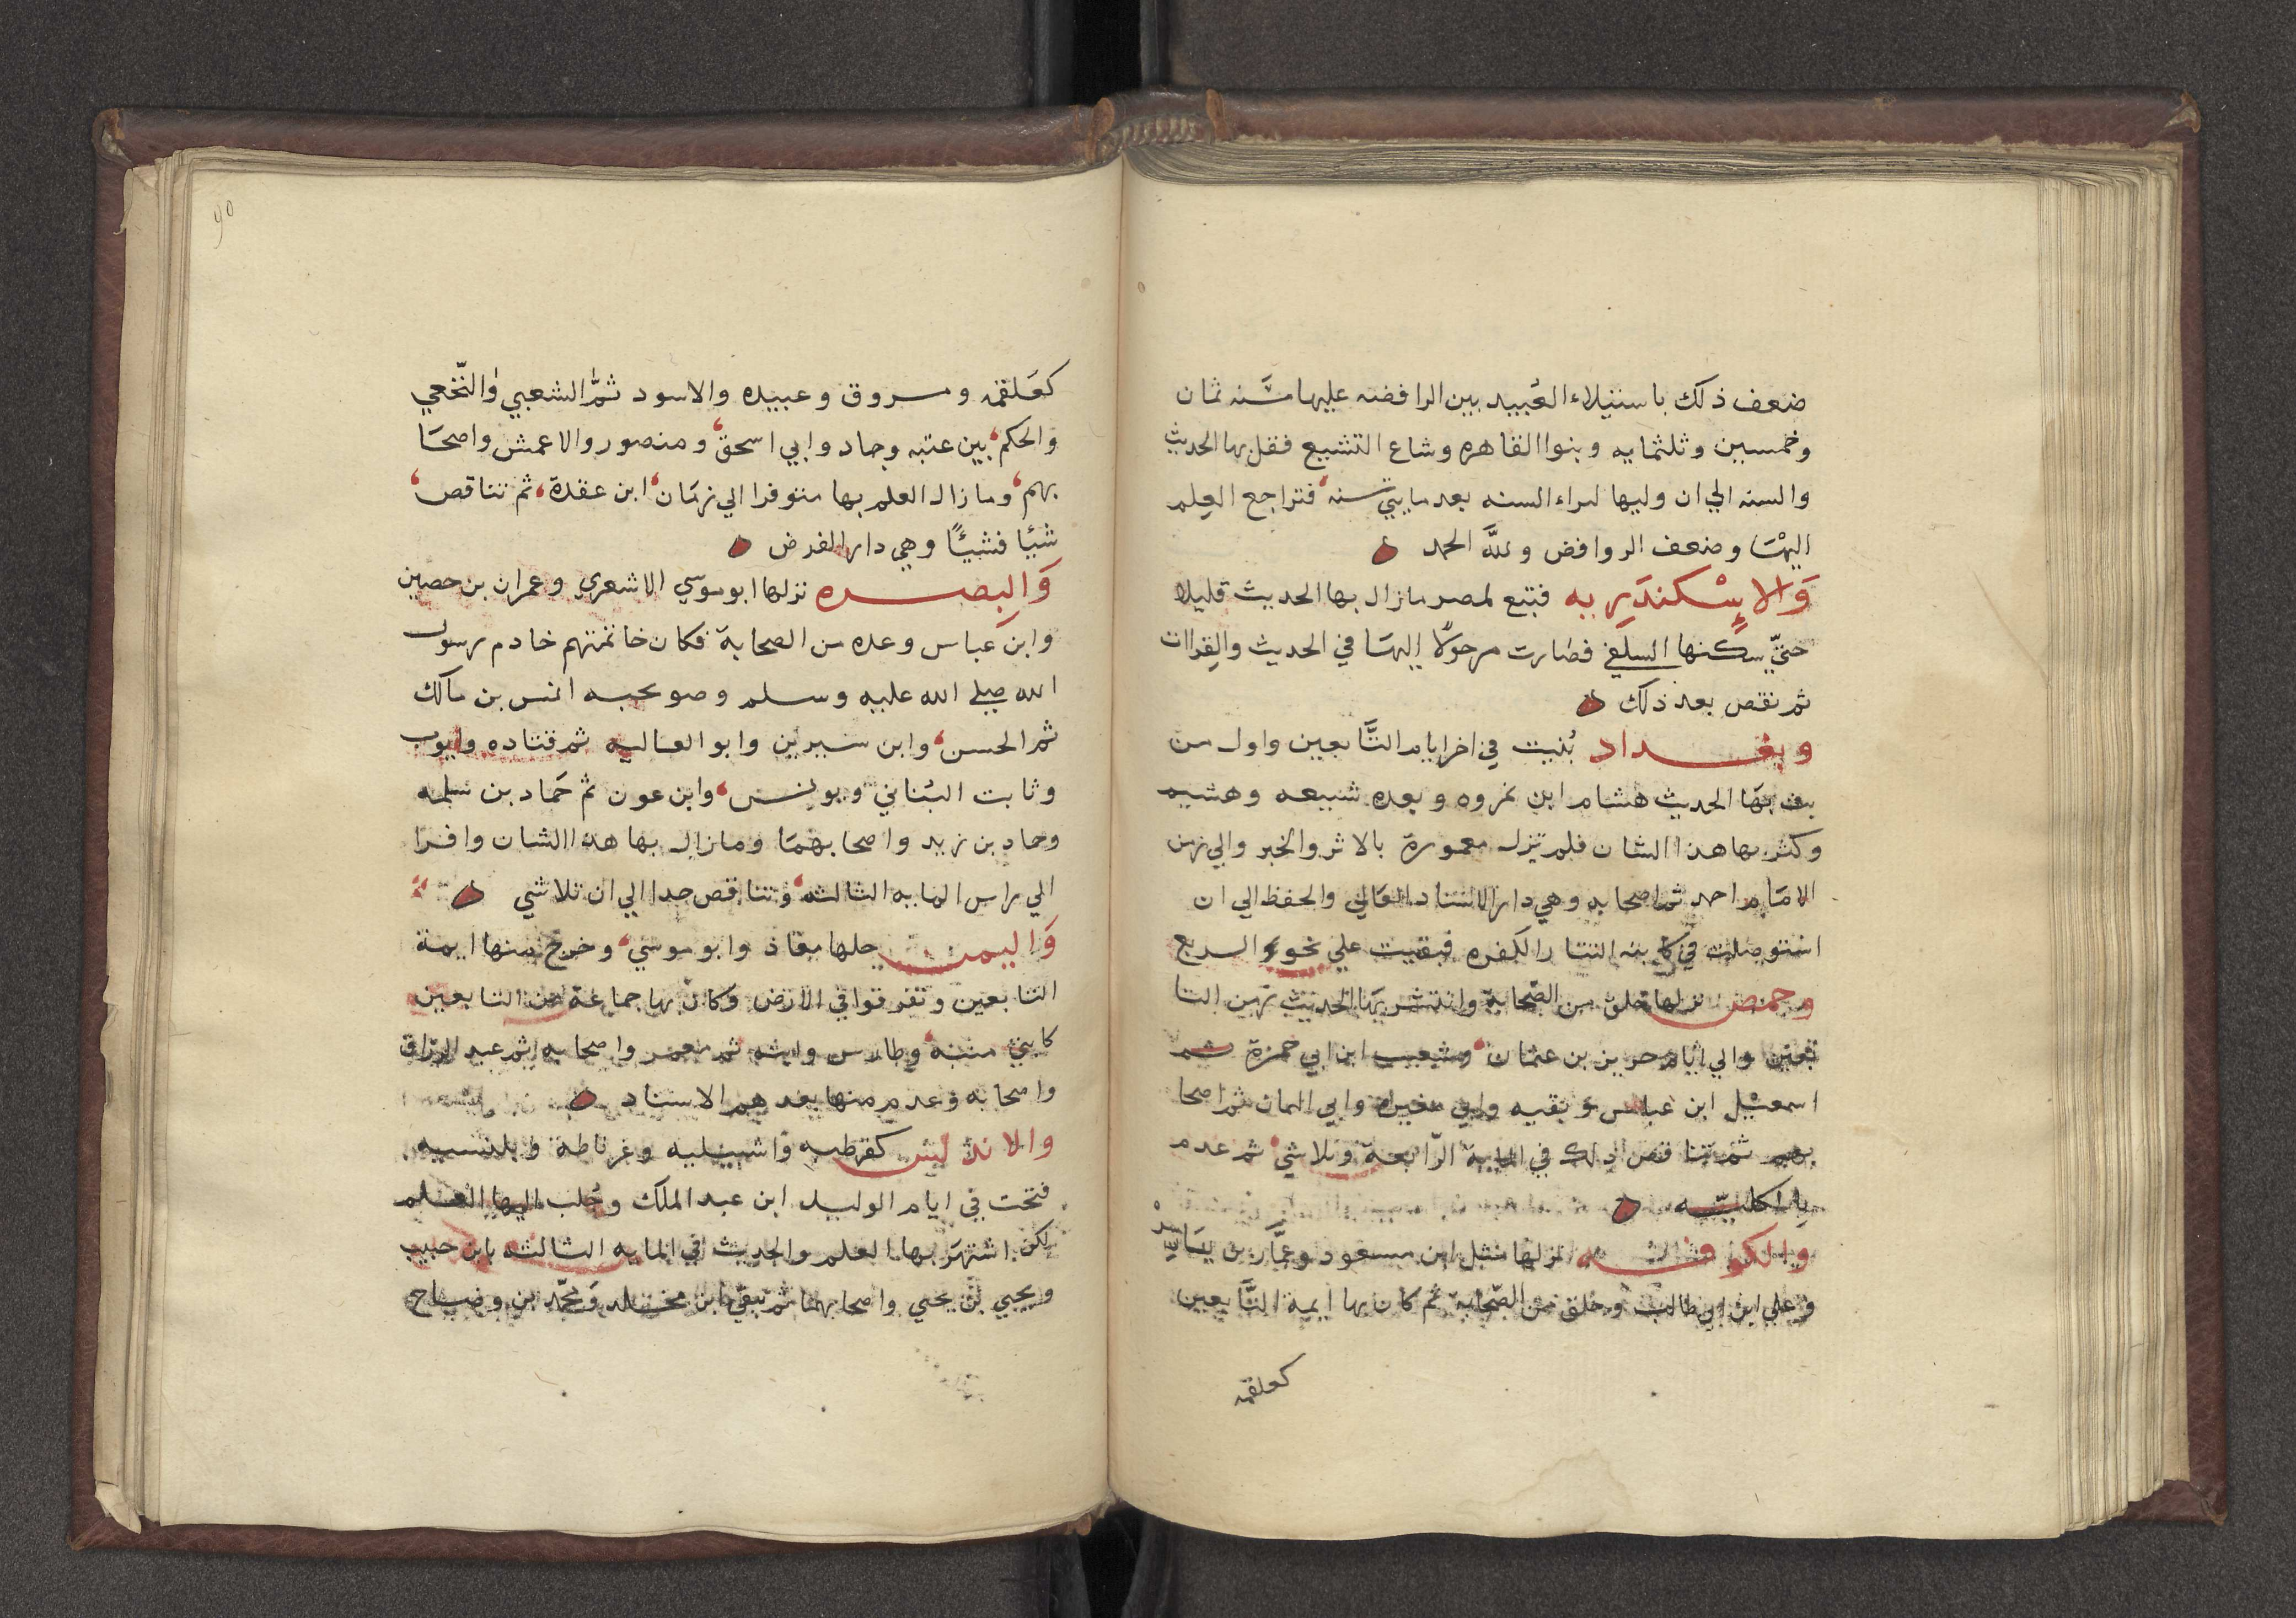 ضعف ذلك باستيلاء العُبيد يين الرافضه عليها سَنه ثمان
وخمسين وثلثمايه وبنوا القاهره وشاع التشيع فقل بها الحديث
والسنه الي ان وليها امراء السنه بعد مايتي سنه، فتراجع العِلم
اليهَا وضعف الروافض وللَّه الحمد
وَالاِسْكندَرِيه فتبع لمصر مازال بها الحديث قليلا
حتيّ سكنها السلفي فصارت مرحولًا اليهَا في الحديث والقراات
ثم نقص بعد ذلك
وبغداد بُنيت في اخر ايام التَّابعين واول من
بث بهَا الحديث هشام ابن عروه وبعده شيبعه وهشيم
وكثر بها هذا الشان فلم تزل معمورة بالاثر والخبر والي زمن
الامَام احمد ثم اصحابه وهي دار الاسناد العَالي والحفظ الي ان
استوصلت في كاينه التتار الكفره فبقيت علي نحو الربع
وحمص نزلها خلق من الصّحابة وانتشر بهَا الحديث زمن التا
بعين والي ايام حريز بن عثمان، وشعيب ابن ابي حمزة ثم
اسمعيل ابن عياس وبقيه وابي مغيرة وابي اليمان ثم اصحا
بهم ثم تناقص ذلك في الماية الرّابعة وتلاشي، ثم عدم
بالكليّه
والكوفه نزلها مثل ابن مسعود وعمَّار بن يَاسِر
وعلي ابن ابي طالب وخلق من الصّحابة ثم كان بها ايمة التَّابعين
كعلقمه
٩٥
كعَلقمه ومسروق وعبيده والاسود ثمَّ الشعبي والنّخعي
والحكم، بين عتبه وحماد وابي اسحق، ومنصور والاعمش واصحَا
بهم، ومازال العلم بها متوفرا الي زمَان، ابن عقدة، ثم تناقص،
شيًا فشيئًا وهي دار الفرض
وَالبصره نزلها ابوموسي الاشعري وعمران بن حصين
وابن عباس وعده من الصحابة فكان خاتمتهم خادم رسول
الله صلي الله عليه وسلم وصويحبه انس بن مالك
ثم الحسن، وابن سيرين وابو العاليه ثم قتاده وايوب
وثابت البُناني ويونس، وابن عون ثم حَماد بن سلمه
وحماد بن زيد واصحابهمَا ومازال بها هذا الشان وافرا
الي راس المايه الثالثه، وتناقص جدا الي ان تلاشي
وَاليمن حلها معاذ وابو موسي، وخرج منها ايمة
التابعين وتفرقوا في الارض وكان بها جماعة من التابعين
كابني منبه، وطاوس وابنه ثم معمر واصحابه ثم عبد الرزاق
واصحابه وعدم منها بعدهم الاسناد
والاندلس كقرطبه واشبيليه وغرناطة وبلنسيه
فتحت في ايام الوليد ابن عبد الملك وجُلب اليها العلم
لكن اشتهَر بها العلم والحديث في المايه الثالثه بابن حبيب
ويحيي بن يحيي واصحابهما ثم ببقي ابن مخلد ومحّمد ابن وضاح